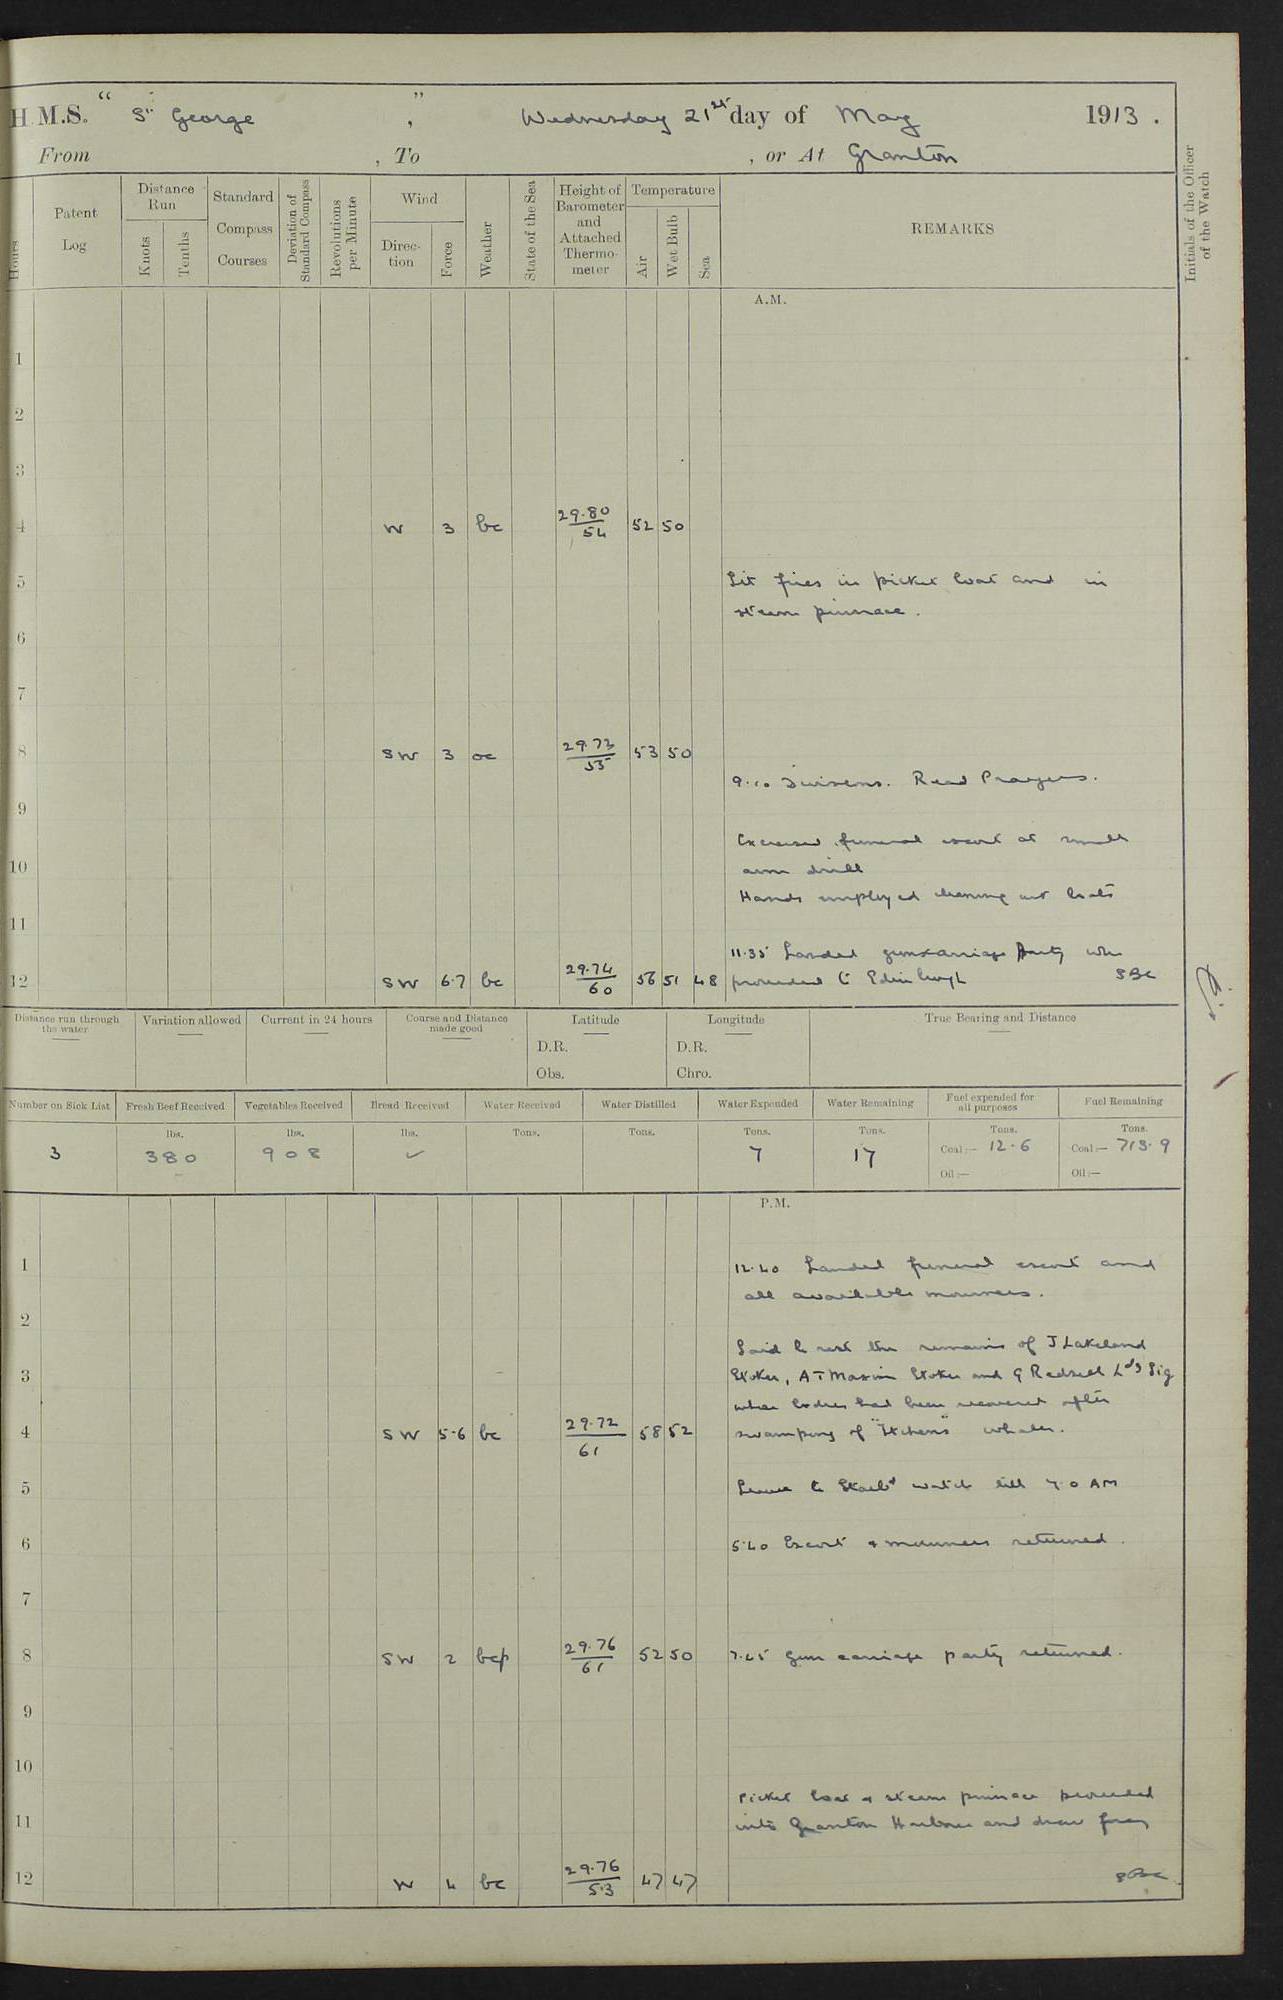 H.M.S. "St George", Wednesday 21st day of May 1913.
From , To , or At Granton
Hours
Patent Log
Distance Run
Knots
Tenths
Standard Compass Courses
Deviation of Standard Compass
Revolutions per Minute
Wind
Direction
Force
Weather
State of the Sea
Height of Barometer and Attached Thermometer
Temperature
Air
Wet Bulb
Sea
REMARKS
Initials of the Officer of the Watch
A.M.
1
2
3
4 W 3 bc 29.80/54 52 50
5 Lit fires in picket boat and in
steam pinnace.
6
7
8 SW 3 oc 29.73/55 53 50
9.10 Divisions. Read Prayers.
9
Exercised funeral escort at small
10 arm drill
Hands employed cleaning out boats
11
11.35 Landed gun carriage party who
12 SW 6.7 bc 29.74/60 56 51 48 proceeded to Edinburgh
Distance run through the water
Variation allowed
Current in 24 hours
Course and Distance made good
Latitude
D.R.
Obs.
Longitude
D.R.
Chro.
True Bearing and Distance
Number on Sick List
Fresh Beef Received
Vegetables Received
Bread Received
Water Received
Water Distilled
Water Expended
Water Remaining
Fuel expended for all purposes
Fuel Remaining
lbs. lbs. lbs. Tons. Tons. Tons. Tons. Tons. Tons.
3 380 908 ✓ 7 17 Coal:— 12.6 Coal:— 713.9
Oil:— Oil:—
P.M.
1 12.40 Landed funeral escort and
all available mourners.
2
Laid to rest the remains of J Lakeland
3 Stoker, A T Maxim Stoker and G Redsell Ldg Sig
whose bodies had been recovered after
4 SW 5.6 bc 29.72/61 58 52 swamping of "Itchens" whaler.
5 Leave to Starbd watch till 7.0 AM
6 5.40 Escort & mourners returned.
7
8 SW 2 bcp 29.76/61 52 50 7.45 Gun carriage party returned.
9
10
Picket boat & steam pinnace proceeded
11 into Granton Harbour and drew fires
12 W 4 bc 29.76/53 47 47